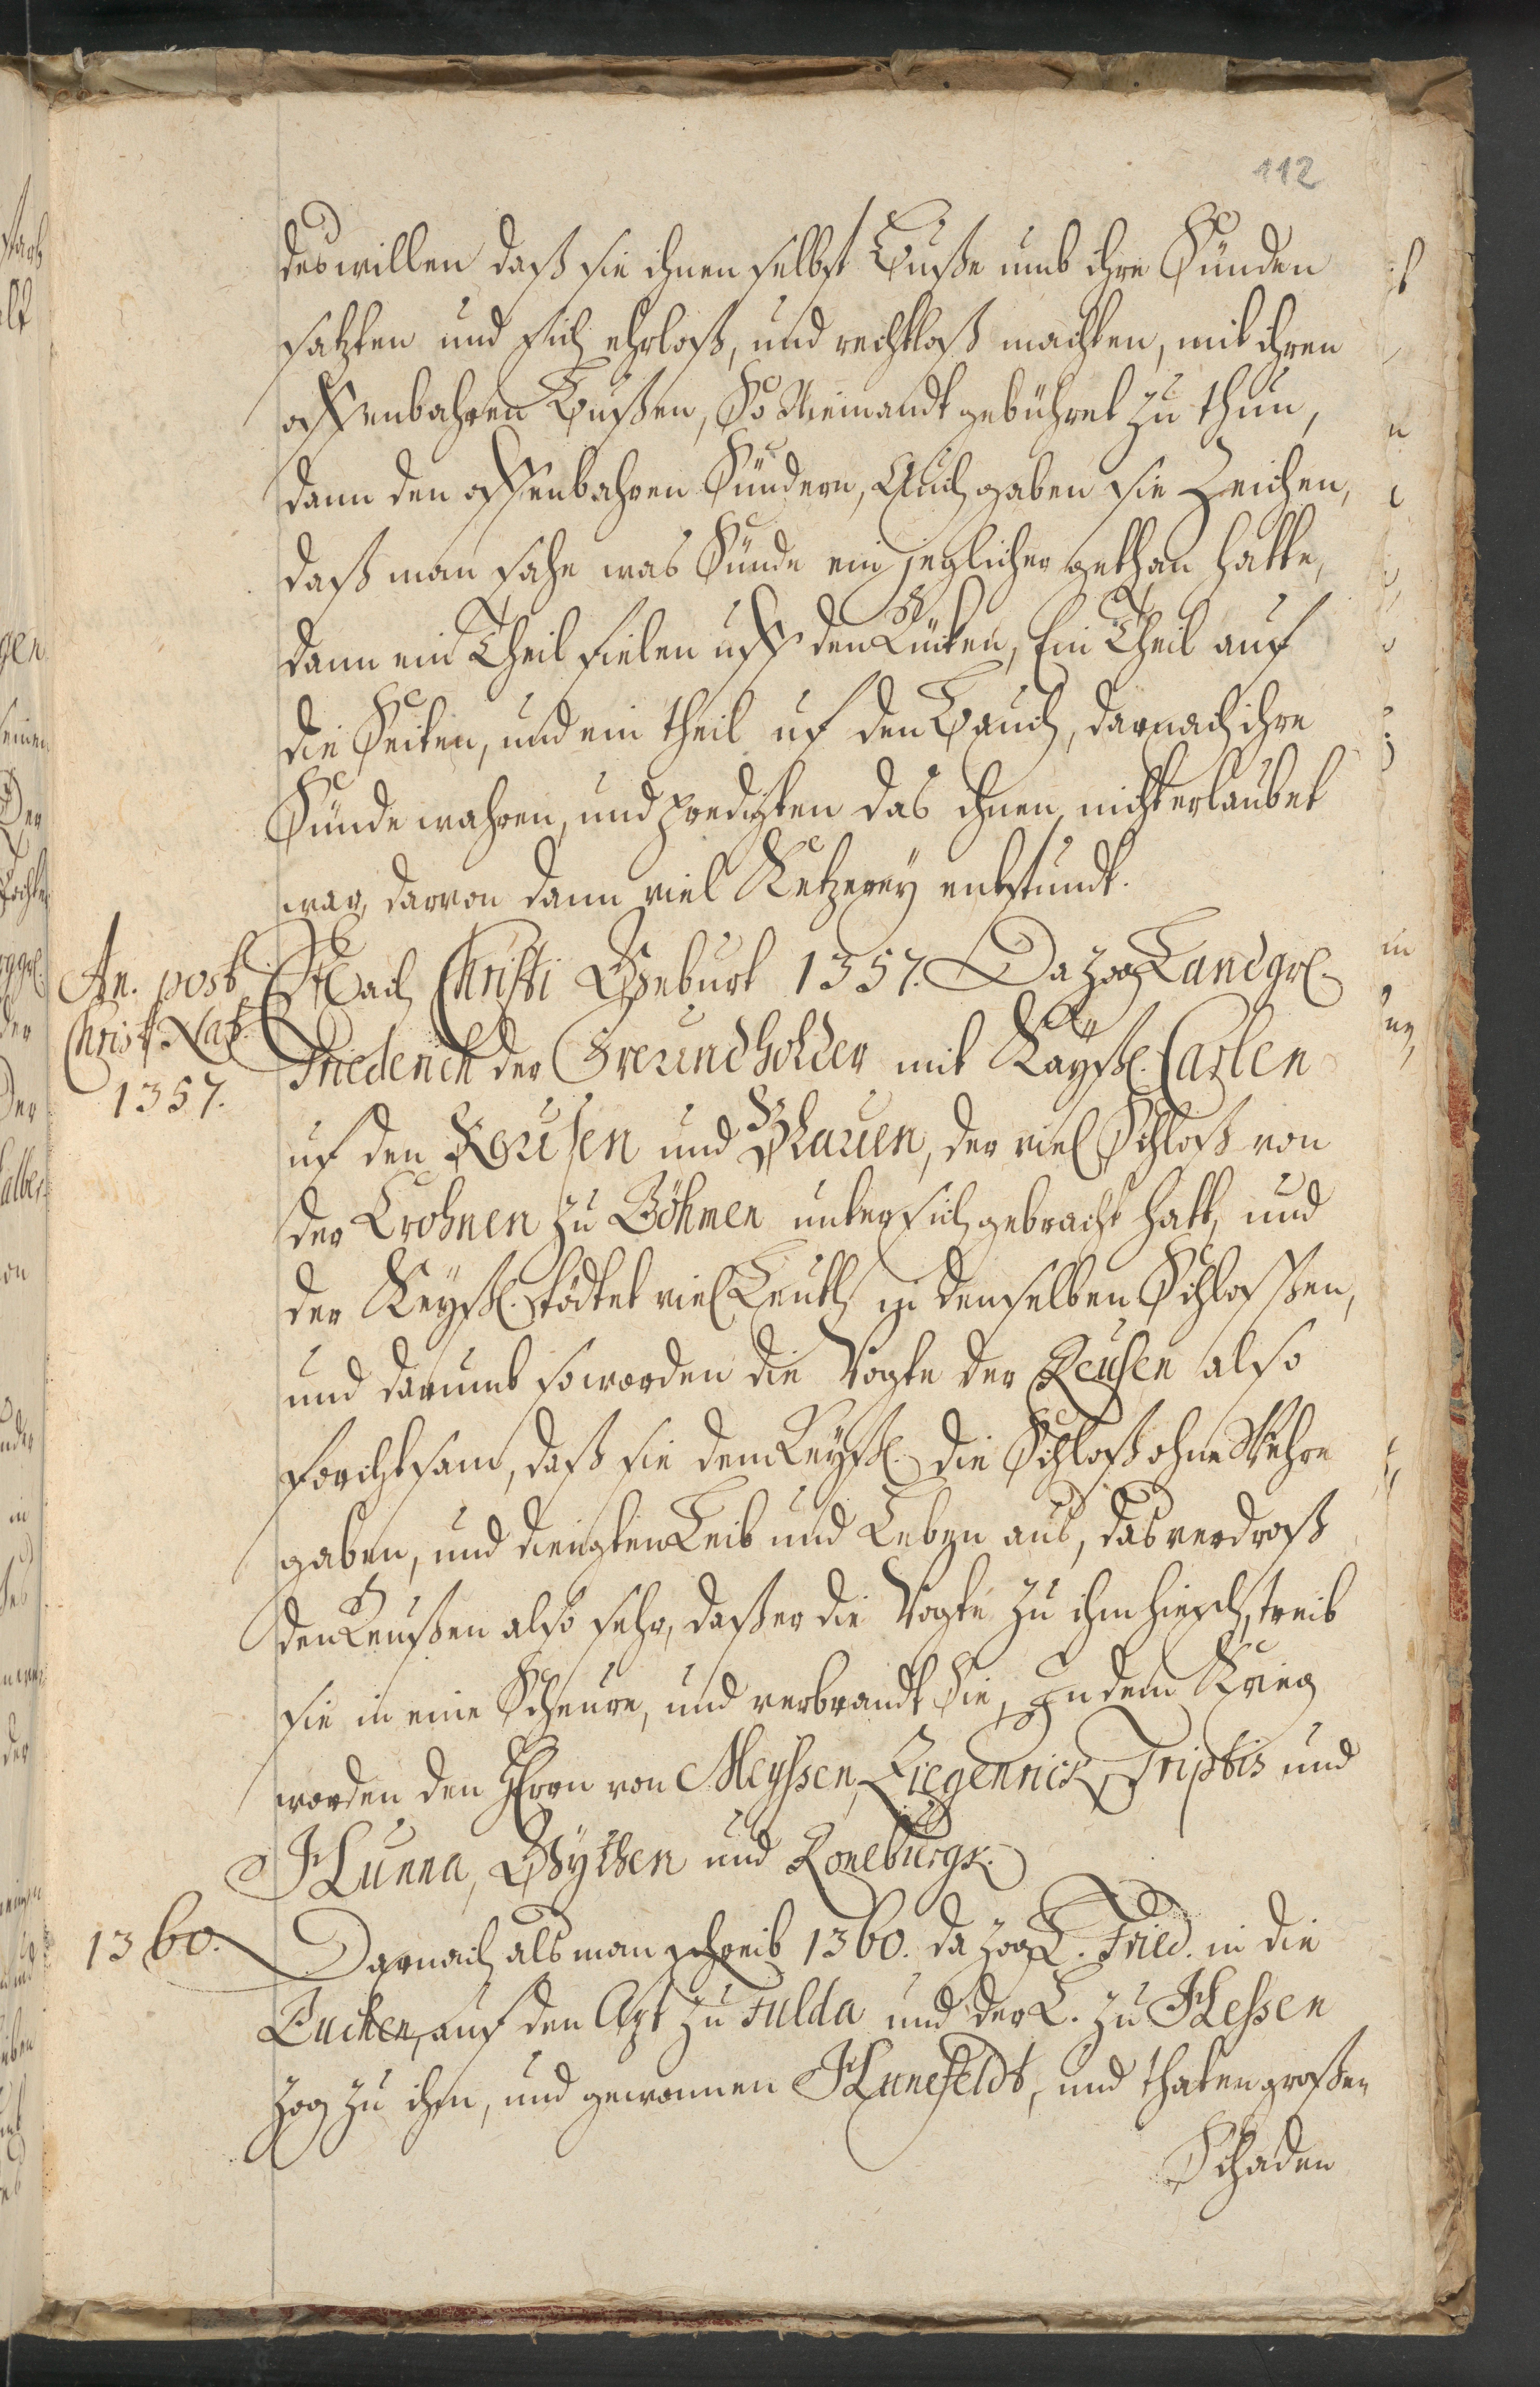 112
deswillen daß sie ihnen selbst Buße umb ihre Sünden
satzten und sich ehrloß, und rechtloß machten, mit ihren
offenbahren Bußen, So Niemandt gebühret zu thun,
dann den offenbahren Sündern, Auch gaben sie Zeichen,
daß man sahe was Sünde ein jeglicher gethan hatte,
dann ein Theil fielen uff den Rücken, Ein Theil auf
die Seiten, und ein theil uf den Bauch, darnach ihre
Sünde wahren, und predigten das ihnen nicht erlaubet
war, darvon dann viel Ketzerey entstundt.
An. post
Christ. Nat.
1357.
Nach Christi Geburt 1357. Da zog Landgr.
Friederich der Freundholder mit Kayß. Carlen
uf den Reusen und Plauen, der viel Schloß von
der Crohnen zu Böhmen unter sich gebracht hatt, und
der Keyß. tödtet viel Leuth in denselben Schloßen,
und darumb so worden die Vogte der Reusen also
forchtsam, daß sie dem Keyß. die Schloß ohne Wehre
gaben, und dingten Leib und Leben aus, das verdroß
den Reußen also sehr, daß er die Vogte zu ihm hiesch, treib
sie in eine Scheure, und verbrandt Sie, In dem Krieg
worden den Herrn von Meyssen, Ziegenrick, Triptis und
Hunna, Wythen und Roneburgk.
1360.
Darnach als man schreib 1360. da zog L. Fried. in die
Buchen, auf den Apt zu Fulda und der L. zu Hessen
zog zu ihm, und gewonnen Hunefeldt, und thaten großen
Schaden